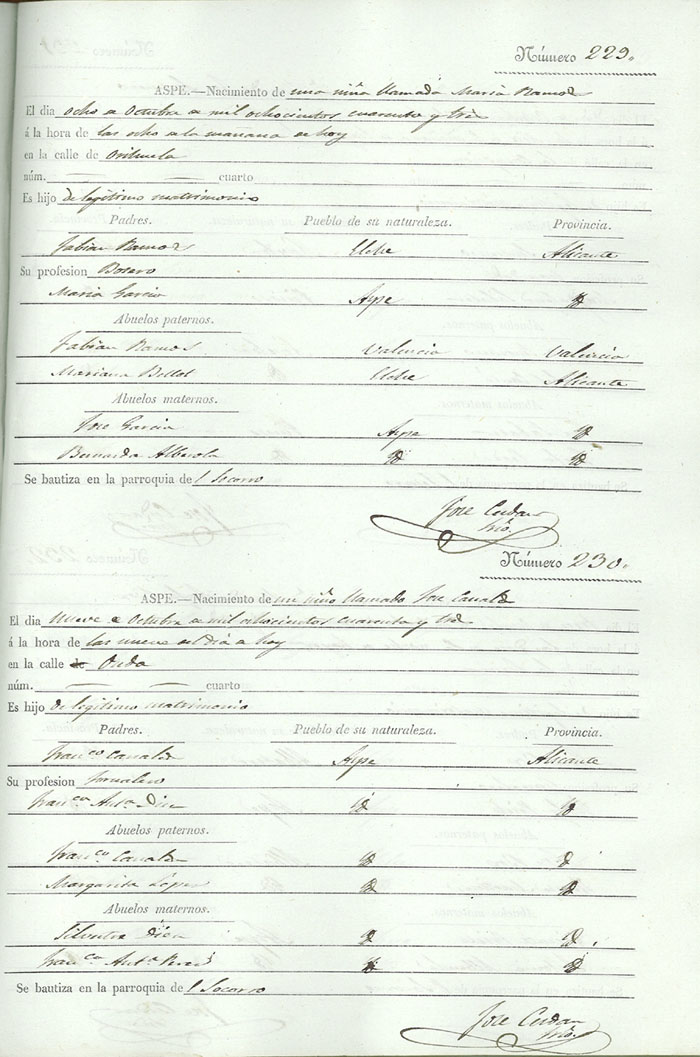 Número 229.
ASPE.—Nacimiento de una niña llamada Maria Ramos
El dia ocho de Octubre de mil ochocientos cuarenta y tres
á la hora de las ocho de la mañana de hoy
en la calle de Orihuela
núm. cuarto
Es hijo de legitimo matrimonio
Padres. Pueblo de su naturaleza. Provincia.
Fabian Ramos Elche Alicante
Su profesion
Maria Garcia Aspe id
Abuelos paternos.
Fabian Ramos Valencia Valencia
Mariana Bellot Elche Alicante
Abuelos maternos.
Jose Garcia Aspe id
Bernarda Alberola id id
Se bautiza en la parroquia del Socorro
Jose Cerdan
Srio.
Número 230.
ASPE.—Nacimiento de un niño llamado Jose
El dia nueve de Octubre de mil ochocientos cuarenta y tres
á la hora de las nueve del dia de hoy
en la calle de Onda
núm. cuarto
Es hijo de legitimo matrimonio
Padres. Pueblo de su naturaleza. Provincia.
Fran.co Aspe Alicante
Su profesion Jornalero
Fran.ca Ant.a id id
Abuelos paternos.
Fran.co id id
Margarita Lopez id id
Abuelos maternos.
Silvestre id id
Fran.ca Ant.a id id
Se bautiza en la parroquia del Socorro
Jose Cerdan
Srio.